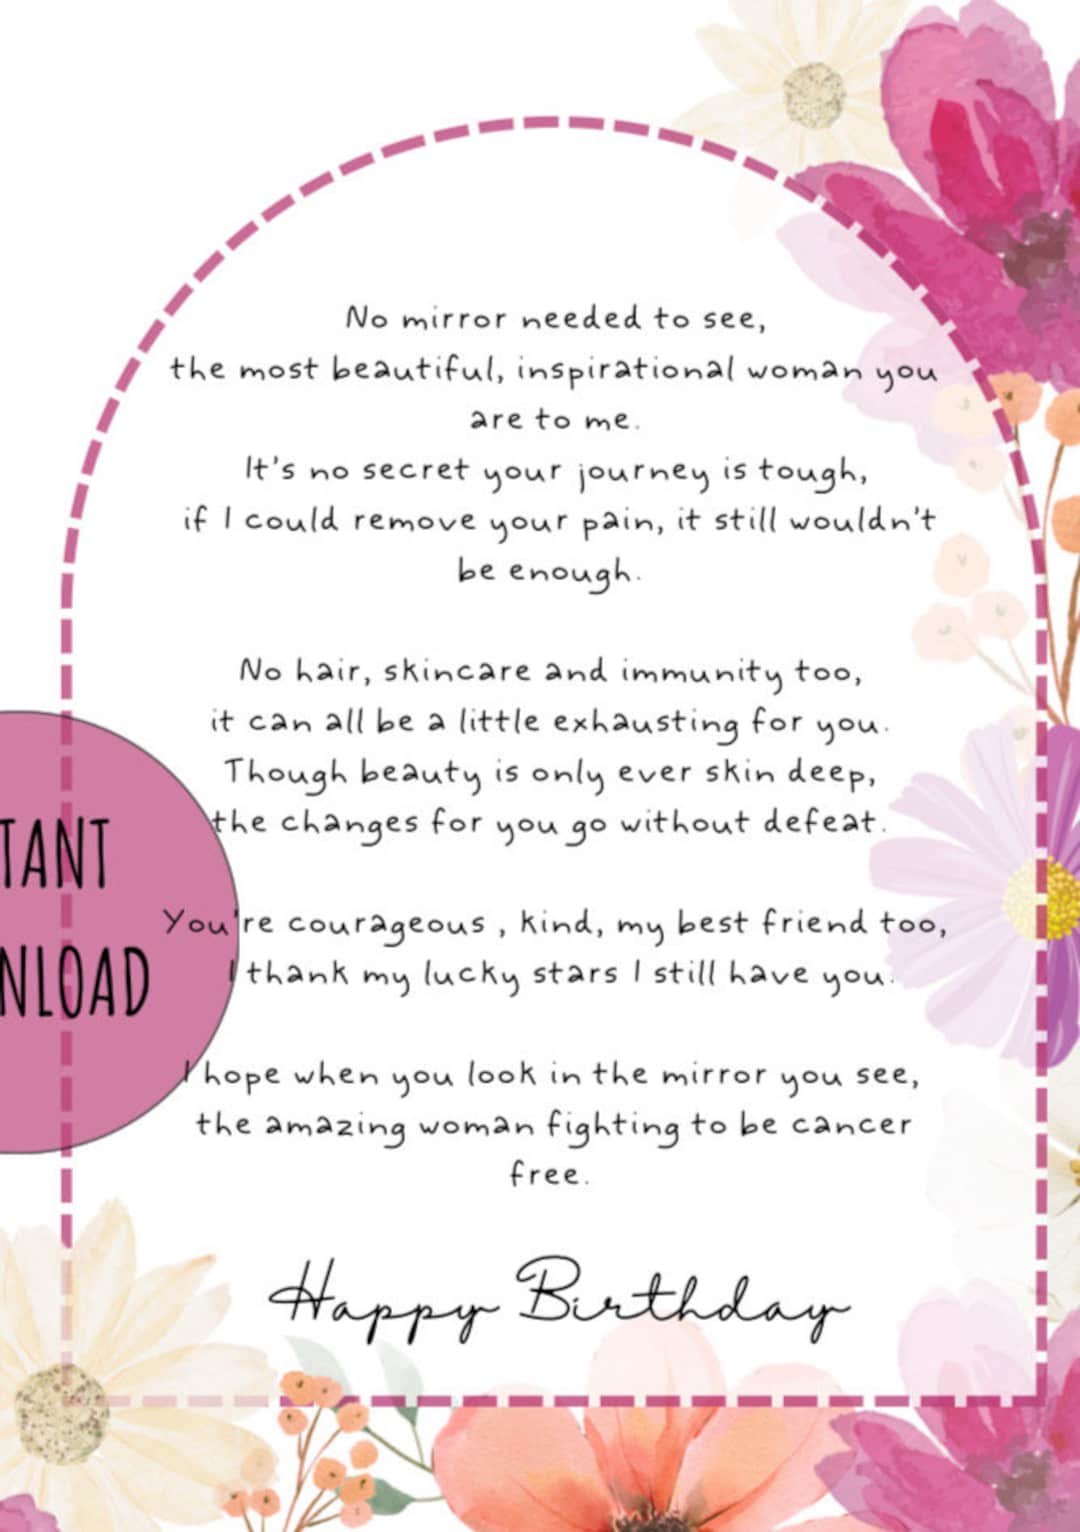 No mirror needed to see,
the most beautiful, inspirational woman you
are to me.
It's no secret your journey is tough,
if I could remove your pain, it still wouldn't
be enough.
No hair, skincare and immunity too,
it can all be a little exhausting for you.
Though beauty is only ever skin deep,
the changes for you go without defeat.
TANT
NLOAD
You're courageous , kind, my best friend too,
I thank my lucky stars I still have you.
I hope when you look in the mirror you see,
the amazing woman fighting to be cancer
free.
Happy Birthday